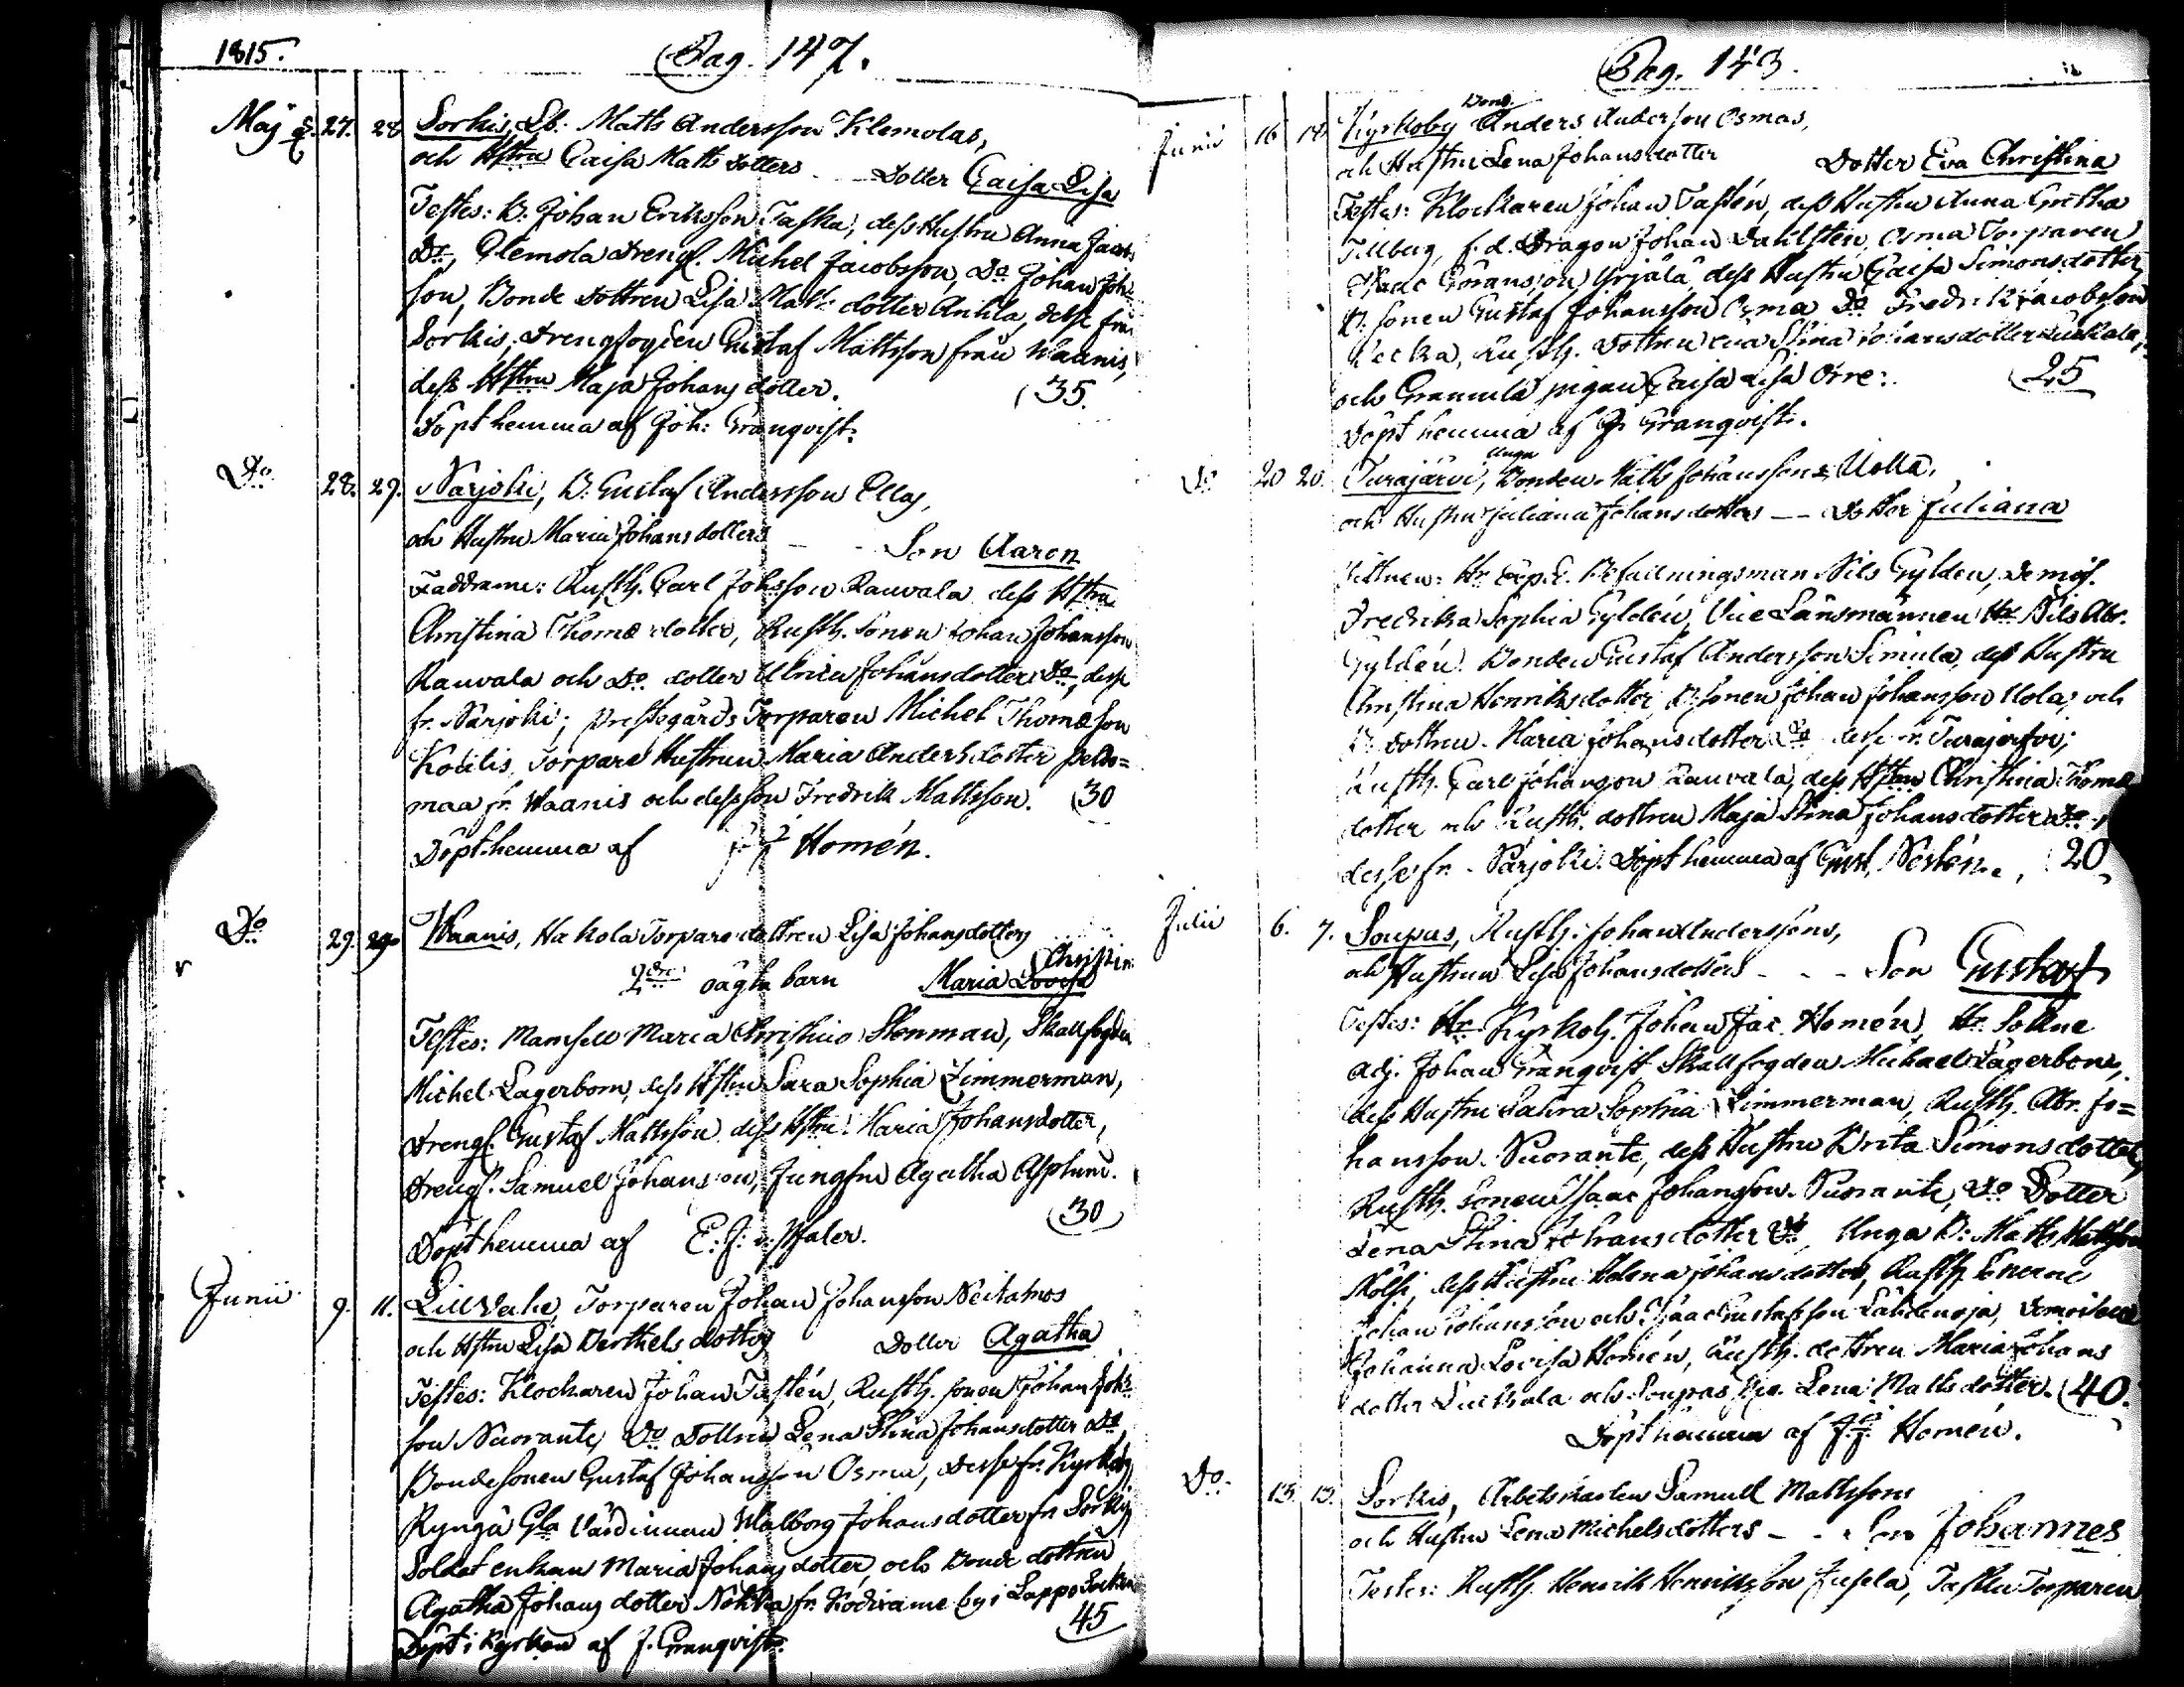 1815.
Pag. 147.
Maj 27. 28. Sorkis, Lb. Matts Andersson Klemolas,
och Hstru Caisa Matts dotters - - Dotter Caisa Lisa
Testes: B. Johan Eriksson Taska, dess Hustru Anna Jacobs
Dr, Clemola Drengs. Michel Jacobsson, Do Johan Joh:
son, Bonde dottren Lisa Matts dotter Anttila, desse från
Sorkis, Drengfogden Gustaf Mattsson från Waanis,
dess Hstru Maja Johans dotter. (35.
Döpt hemma af Joh: Granqvist.
Do 28. 29. Sarjoki, B. Gustaf Andersson Ellas,
och Hustru Maria Johans dotters - - Son Aaron
Faddrarne: Rusth. Carl Johsson Rauvala dess Hstru
Christina Thomæ dotter, Rusth. Sonen Johan Johansson
Rauvala och Do dotter Ulrica Johans dotter Do, desse
fr. Sarjoki; Prestegårds Torparen Michel Thomæson
Kotilis, Torpare Hustrun Maria Anders dotter Peldo=
maa fr. Waanis och dess son Fredrik Mattsson. (30
Döpt hemma af J. J. Homén.
Do 29. 29. Waanis, Hakola Torpare dottren Lisa Johans dotters
2dra oägta barn Maria Lovisa Christin
Testes: Mamsell Maria Christina Stenman, Skallfogden
Michel Lagerbom, dess Hstru Sara Sophia Zimmerman,
Drengs. Gustaf Mattsson dess Hstru Maria Johansdotter,
Drengs. Samuel Johansson, Jungfru Agatha Asplund.
(30)
Döpt hemma af E. J. v: Pfaler.
Junii 9. 11. Lill Vahe, Torparen Johan Johansson Neitamos
och Hstru Lisa Berthels dotters Dotter Agatha
Testes: Klockaren Johan Tastén, Rusth. sonen Johan Joh:
son Nuorante, Do Dottren Lena Stina Johansdotter Do,
Bondesonen Gustaf Johansson Osma, desse fr. Kyrkoby
Rynga Gla Värdinnan Walborg Johans dotter fr. Sorkis
Soldat enkan Maria Johans dotter, och Bonde dottren
Agatha Johans dotter Nohka fr. Kodixame by i Lappo Sockn
45
Döpt i Kyrkan af J. Granqvist.
Pag. 143.
Junii 16 18. Kyrkoby Bond. Anders Anderson Osmas,
och Hustru Lena Johansdotter Dotter Eva Christina
Testes: Klockaren Johan Tastén, dess Hustru Anna Gretha
Tillberg, f. d. Dragon Johan Dahlsten, Osma Torparen
Isaac Göransson Yrjälä, dess Hustru Caisa Simonsdotter,
B. sonen Gustaf Johansson Osma Do Fredrik Jacobsson
, Rusth. Dottren Eva Stina Johansdotter
och Grannila pigan Caisa Lisa Orre:. 25
Döpt hemma af J. Granqvist.
Do 20 20. Turajärvi, unga Bonden Matts Johanssons Uolla,
och Hustru Juliana Johans dotters - - Dotter Juliana
Vittnen: Hr Exp. Befallningsman Nils Gyldén, Demois.
Fredrika Sophia Gyldén, Vice Länsmannen Hr Nils Abr.
Gyldén. Bonden Gustaf Andersson Simula, dess Hustru
Christina Henriksdotter, B. sonen Johan Johansson Uola, och
B. dottren Maria Johans dotter Do desse fr. Turajerfvi;
Rusth. Carl Johansson Rauvala, dess Hstru Christina Thomæ
dotter och Rusth. dottren Maja Stina Johans dotter Do,
desse fr. Sarjoki. Döpt hemma af Gust. Nestén. (20
Julii 6. 7. Soupas, Rusth. Johan Anderssons,
och Hustrun Lisa Johans dotters - - - Son Gustaf
Testes: Hr Kyrkoh. Johan Jac. Homén, Hr. Sokne
adj. Johan Granqvist Skallfogden Michael Lagerbom,
dess Hustru Sahra Sophia Zimmerman, Rusth. Abr. Jo=
hansson Nuorante, dess Hustru Brita Simons dotter,
Rusth. Sonen Isaac Johansson Nuorante, Do Dotter
Lena Stina Johansdotter Do, Unga B: Matts Mattsson
Nolsi, dess Hustru Helena Johans dotter, Rusth. Sönerne
Johan Johansson och Isaac Gustafsson Lähdenoja, Demoiselle
Johanna Lovisa Homén, Rusth. dottren Maria Johans
dotter och Soupas Lena Matts dotter. (40.
Döpt hemma af J. J. Homén.
Do 13. 13. Sorkis, Arbetskarlen Samuel Mattssons
och Hustru Lena Michelsdotters - - Son Johannes
Testes: Rusth. Henrik Henriksson Jusela, Taska Torparen